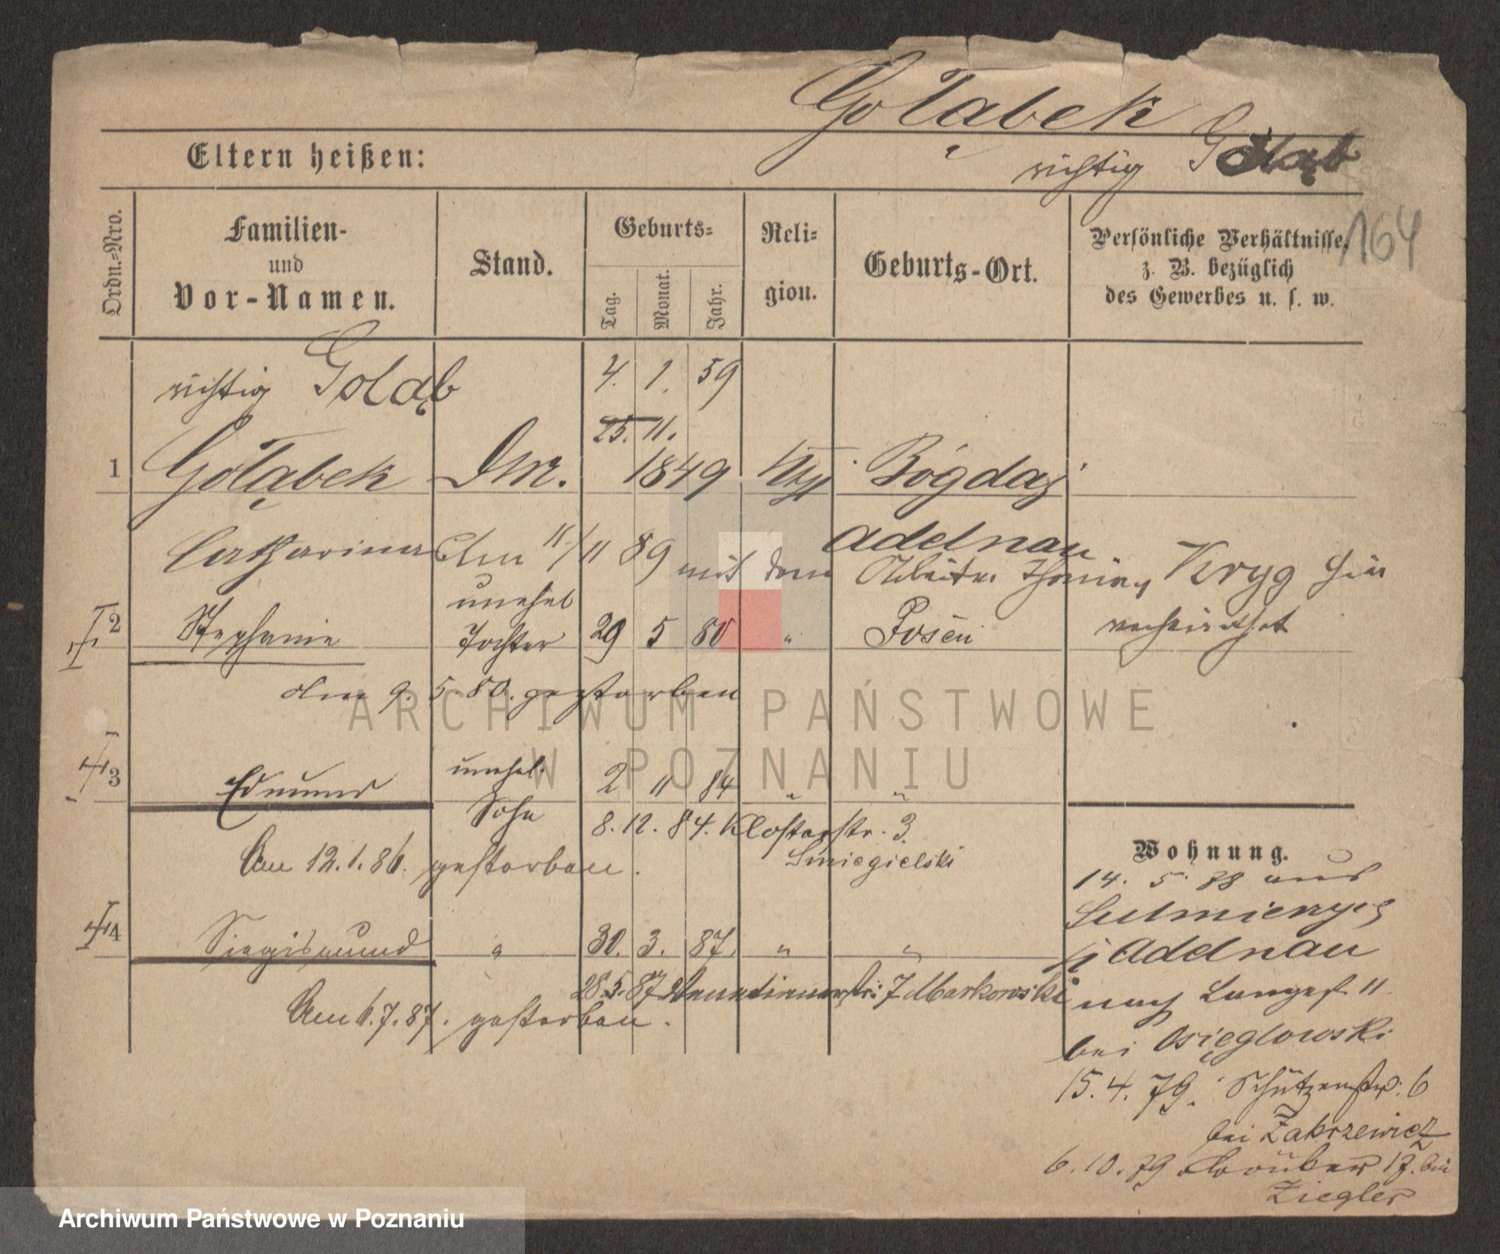 Gołąbek
Eltern heißen:
richtig Gołąb
Ordn.=Nro.
Familien-
und
Vor-Namen.
Stand.
Geburts=
Tag.
Monat.
Jahr.
Reli=
gion.
Geburts-Ort.
Persönliche Verhältnisse,
z. B. bezüglich
des Gewerbes u. s. w.
164
richtig Goląb
4. 1. 59
25. 11.
1 Gołąbek
1849
Bógdaj
Catharina
Adelnau
am 11/11 89 mit dem Arbeiter Kryg hier
verheirathet
unehel
2 Stephanie Tochter 29 5 80 " Posen
am 9. 5 80. gestorben
3 Edmund unehel. 2 11 84 " "
Sohn
8. 12. 84. Klosterstr. 3.
Smiegielski
Am 12.1.86. gestorben.
4 Siegismund " 30. 3. 87. " "
28.5.87 7 Markowski
Am 6.7.87. gestorben.
Wohnung.
14. 5. 88 aus
Sulmierzyce
Adelnau
nach Langest. 11
bei Osięglowski
15. 4. 79. Schützenstr. 6
bei Zakrzewicz
6. 10. 79 17. bei
Ziegler
ARCHIWUM PAŃSTWOWE
W POZNANIU
Archiwum Państwowe w Poznaniu